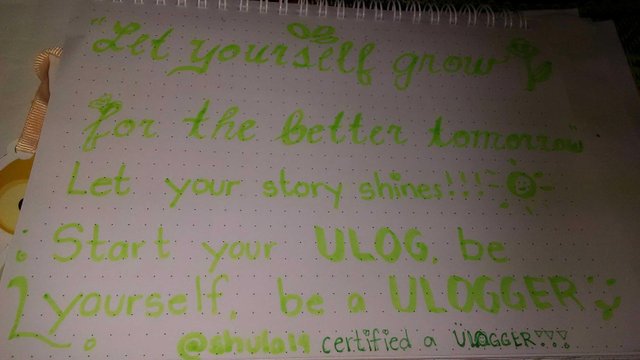 "Let yourself grow
for the better tomorrow"
Let your story shines!!!
Start your ULOG, be
yourself, be a ULOGGER
@shula14 certified a ULOGGER!!!